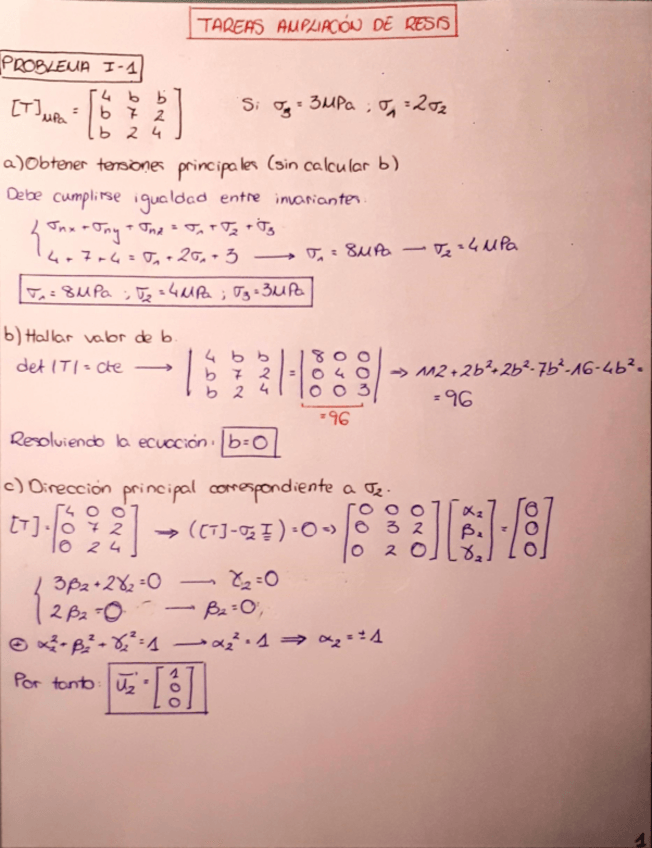 TAREAS AMPLIACIÓN DE RESIS
PROBLEMA I-1
[T]MPa = [4 b b; b 7 2; b 2 4]   Si σ3 = 3MPa ; σ1 = 2σ2
a) Obtener tensiones principales (sin calcular b)
Debe cumplirse igualdad entre invariantes.
σnx + σny + σnz = σ1 + σ2 + σ3
4 + 7 + 4 = σ1 + 2σ1 + 3 → σ1 = 8MPa — σ2 = 4MPa
σ1 = 8MPa ; σ2 = 4MPa ; σ3 = 3MPa
b) Hallar valor de b.
det |T| = cte → |4 b b; b 7 2; b 2 4| = |8 0 0; 0 4 0; 0 0 3| ⇒ 112 + 2b² + 2b² - 7b² - 16 - 4b² =
= 96
= 96
Resolviendo la ecuación: b = 0
c) Dirección principal correspondiente a σ2.
[T] = [4 0 0; 0 7 2; 0 2 4] → ([T] - σ2 I) = 0 ⇒ [0 0 0; 0 3 2; 0 2 0] [α2; β2; γ2] = [0; 0; 0]
3β2 + 2γ2 = 0 → γ2 = 0
2β2 = 0 → β2 = 0
⊕ α2² + β2² + γ2² = 1 → α2² = 1 ⇒ α2 = ±1
Por tanto: u2 = [1; 0; 0]
1